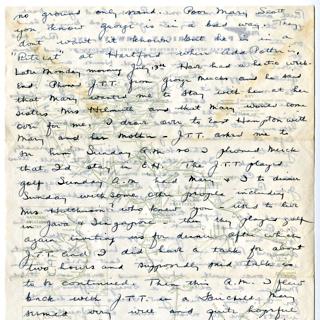 no ground only sand. Poor Mary Scott
you know George is in a bad way. They
don't want it known but he is in a
"Retreat" at Hartford where Ada Potter is.
Late Monday morning July 3rd Have had a hectic week
end. Phoned J.T.T. from George Mechs and he said
that Mary wanted me to stay with her at her
sisters Mrs and that Mary would come
over for me. I drove over to East Hampton with
Mary and her Mother - J.T.T. asked me to
him Sunday A.M. so I phoned Merch
that I'd stay in E.H. The J.T.T. played
golf Sunday A.M. had Mary & I to dinner
Sunday with some other people including
Mrs Hutchinson who knew you used to live
in Java & Singapore - then they played golf
again inviting us for dinner after which
J.T.T. and I did have a talk for about
two hours and supposedly said talk is
to be continued. Then this A.M. I flew
back with J.T.T. in a Fairchild. Mary
seemed very well and quite hopeful